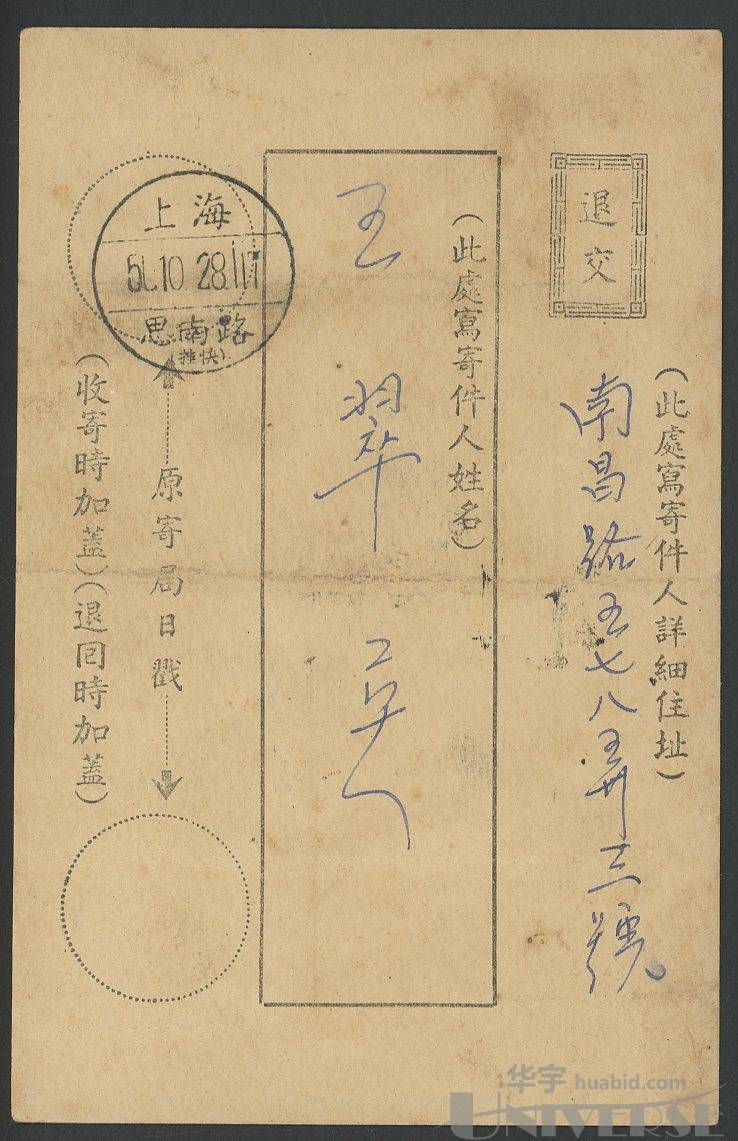 退交
(此處寫寄件人詳細住址)
南昌路五七八弄三號
(此處寫寄件人姓名)
王翠
原寄局日戳
(收寄時加蓋)(退囘時加蓋)
上海
51.10 28.17
思南路
(推快)
华宇 huabid.com
UNIVERSE